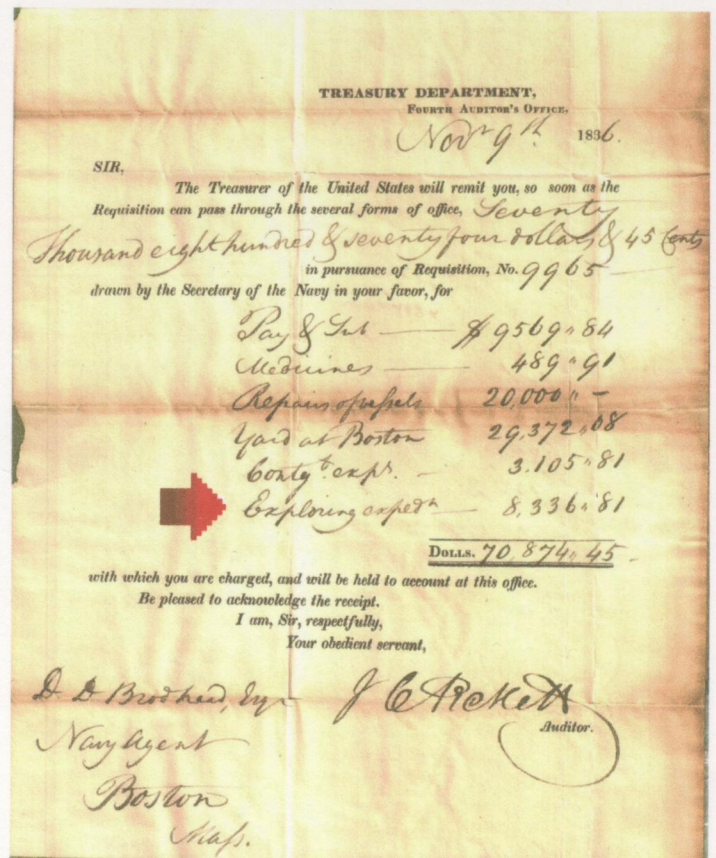 TREASURY DEPARTMENT,
FOURTH AUDITOR'S OFFICE.
Novr 9th 1836.
SIR,
The Treasurer of the United States will remit you, so soon as the
Requisition can pass through the several forms of office, Seventy
Thousand eight hundred & seventy four dollars & 45 Cents
in pursuance of Requisition, No. 9965
drawn by the Secretary of the Navy in your favor, for
Pay & Sub — $ 9569 " 84
Medicines — 489 " 91
Repairs of vessels 20,000 " –
Yard at Boston 29,372 " 08
Contgt. exps. – 3.105 " 81
Exploring expedn – 8,336 " 81
DOLLS. 70,874 " 45
with which you are charged, and will be held to account at this office.
Be pleased to acknowledge the receipt.
I am, Sir, respectfully,
Your obedient servant,
D. D Brodhead, Esqr J C Pickett
Auditor.
Navy Agent
Boston
Mass.